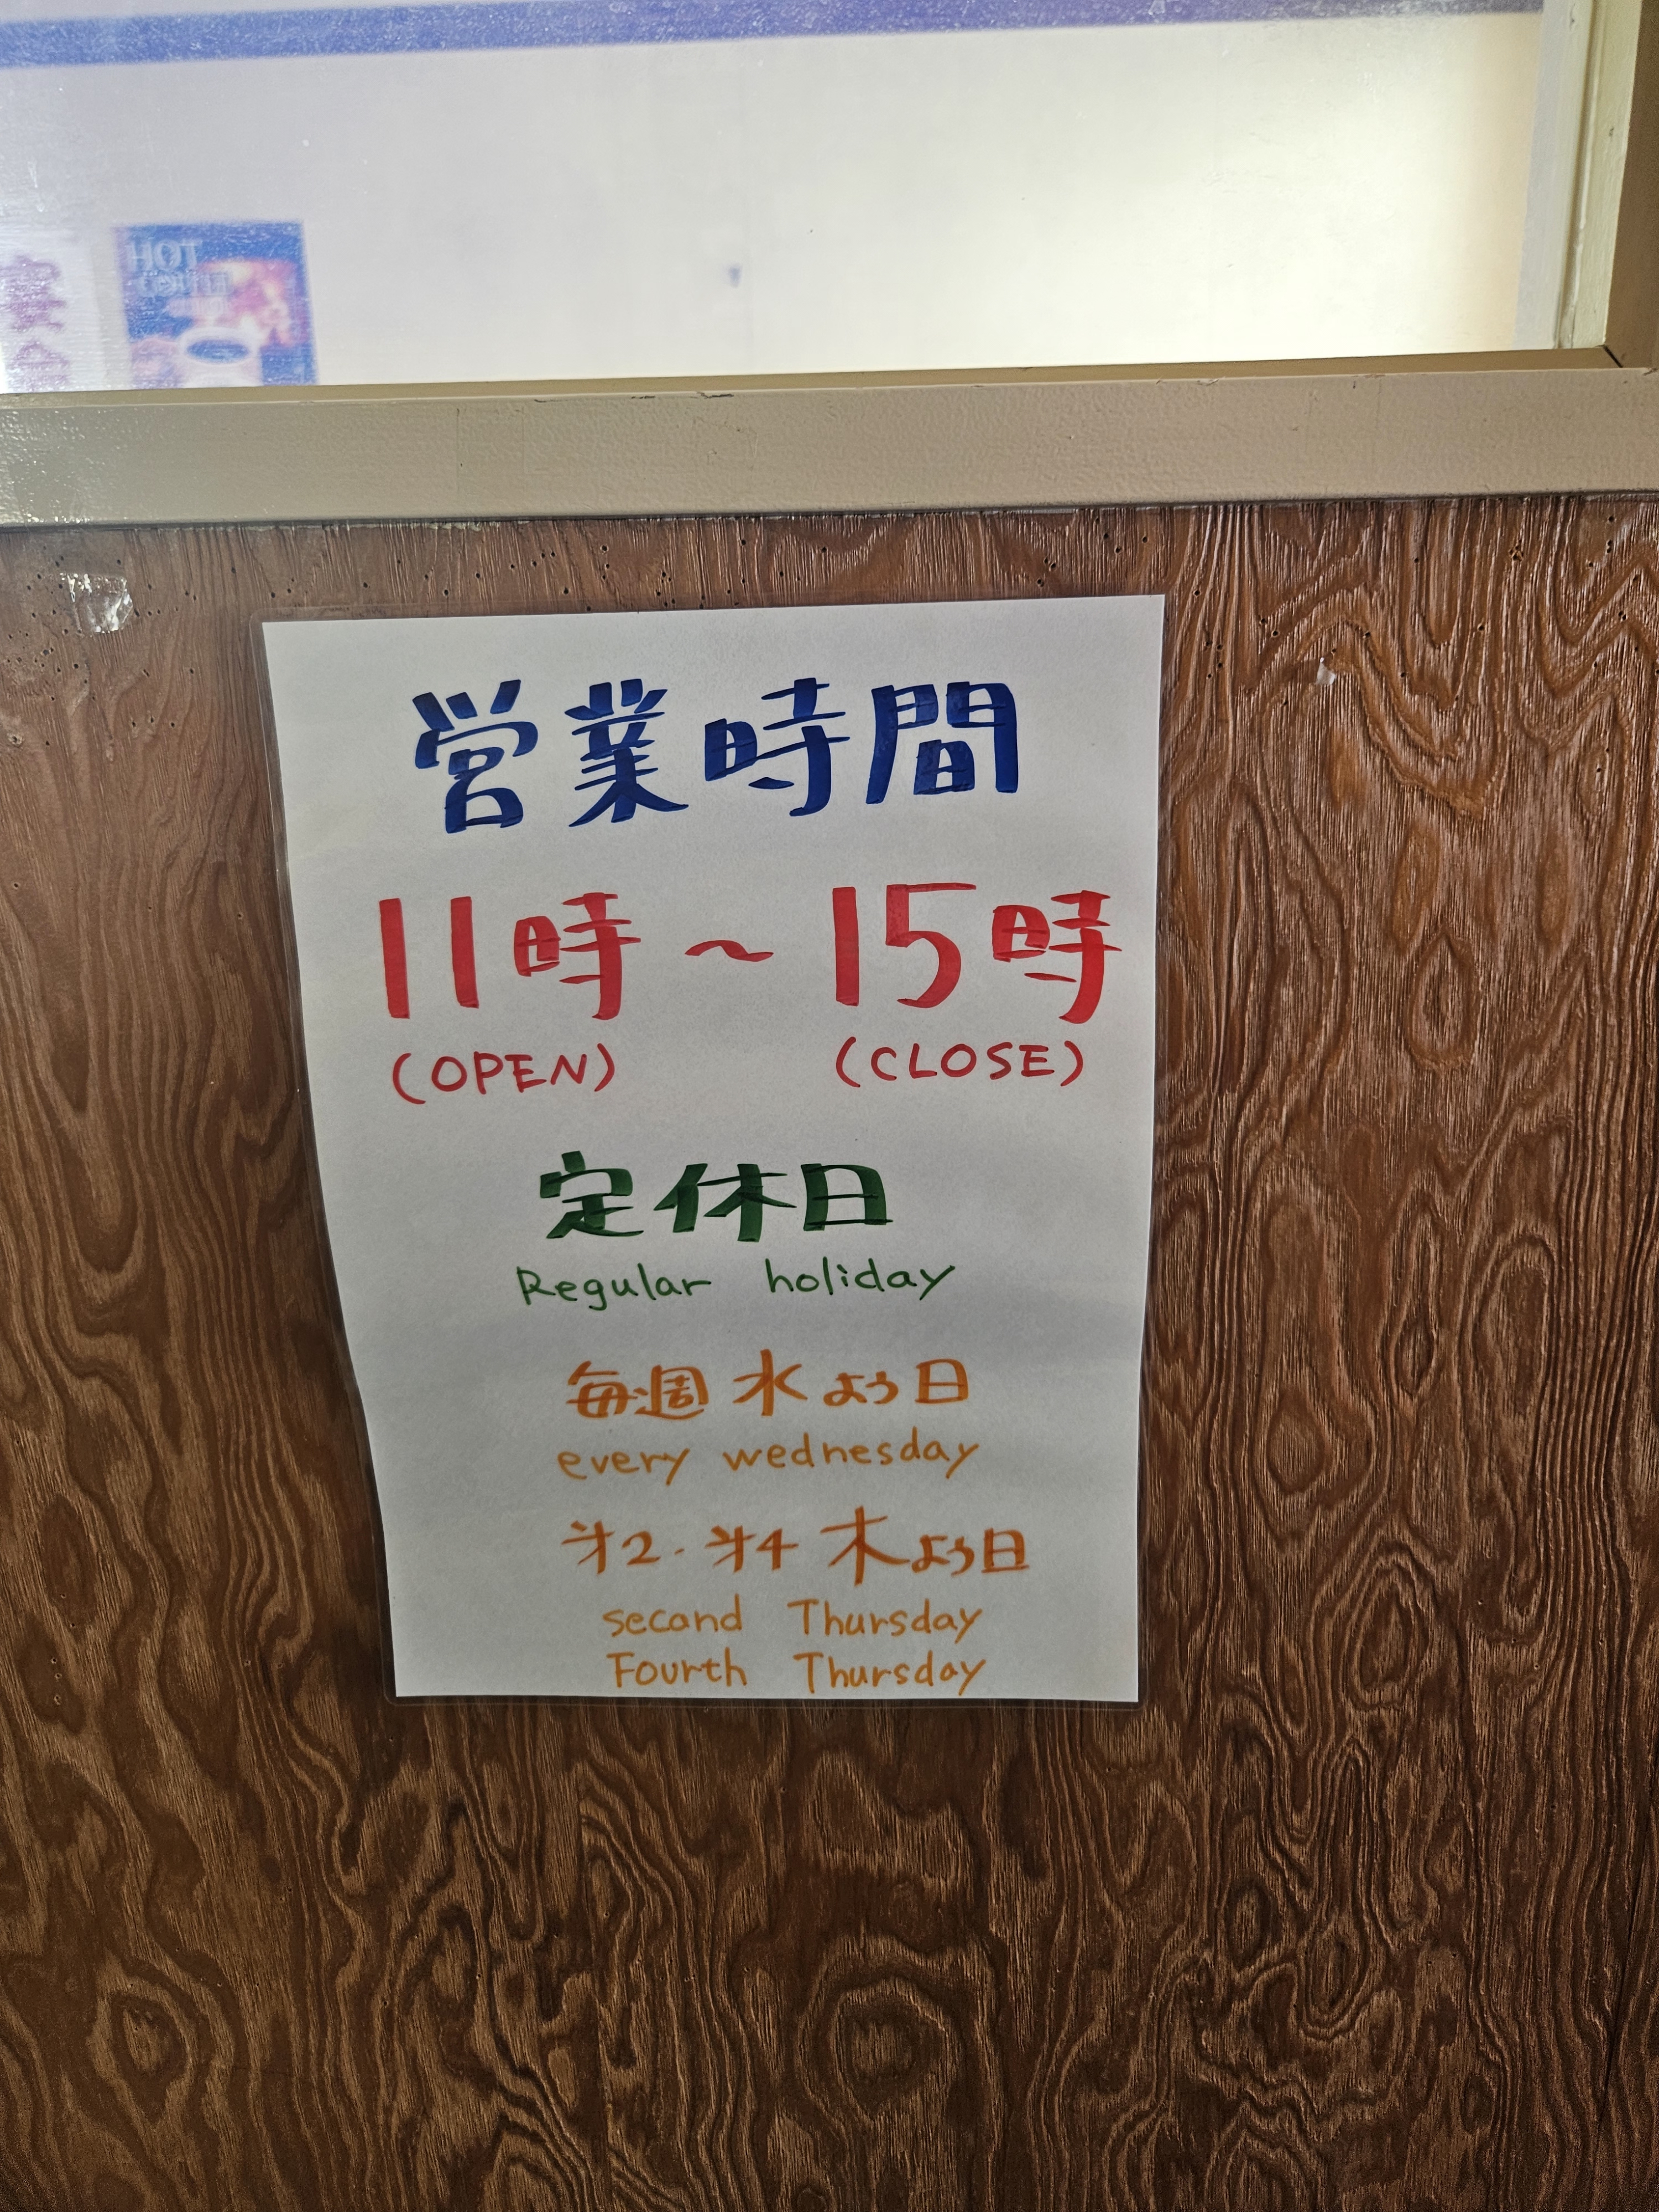 営業時間
11時 ~ 15時
(OPEN) (CLOSE)
定休日
Regular holiday
毎週 水よう日
every wednesday
㐧2・㐧4 木よう日
second Thursday
Fourth Thursday
HOT